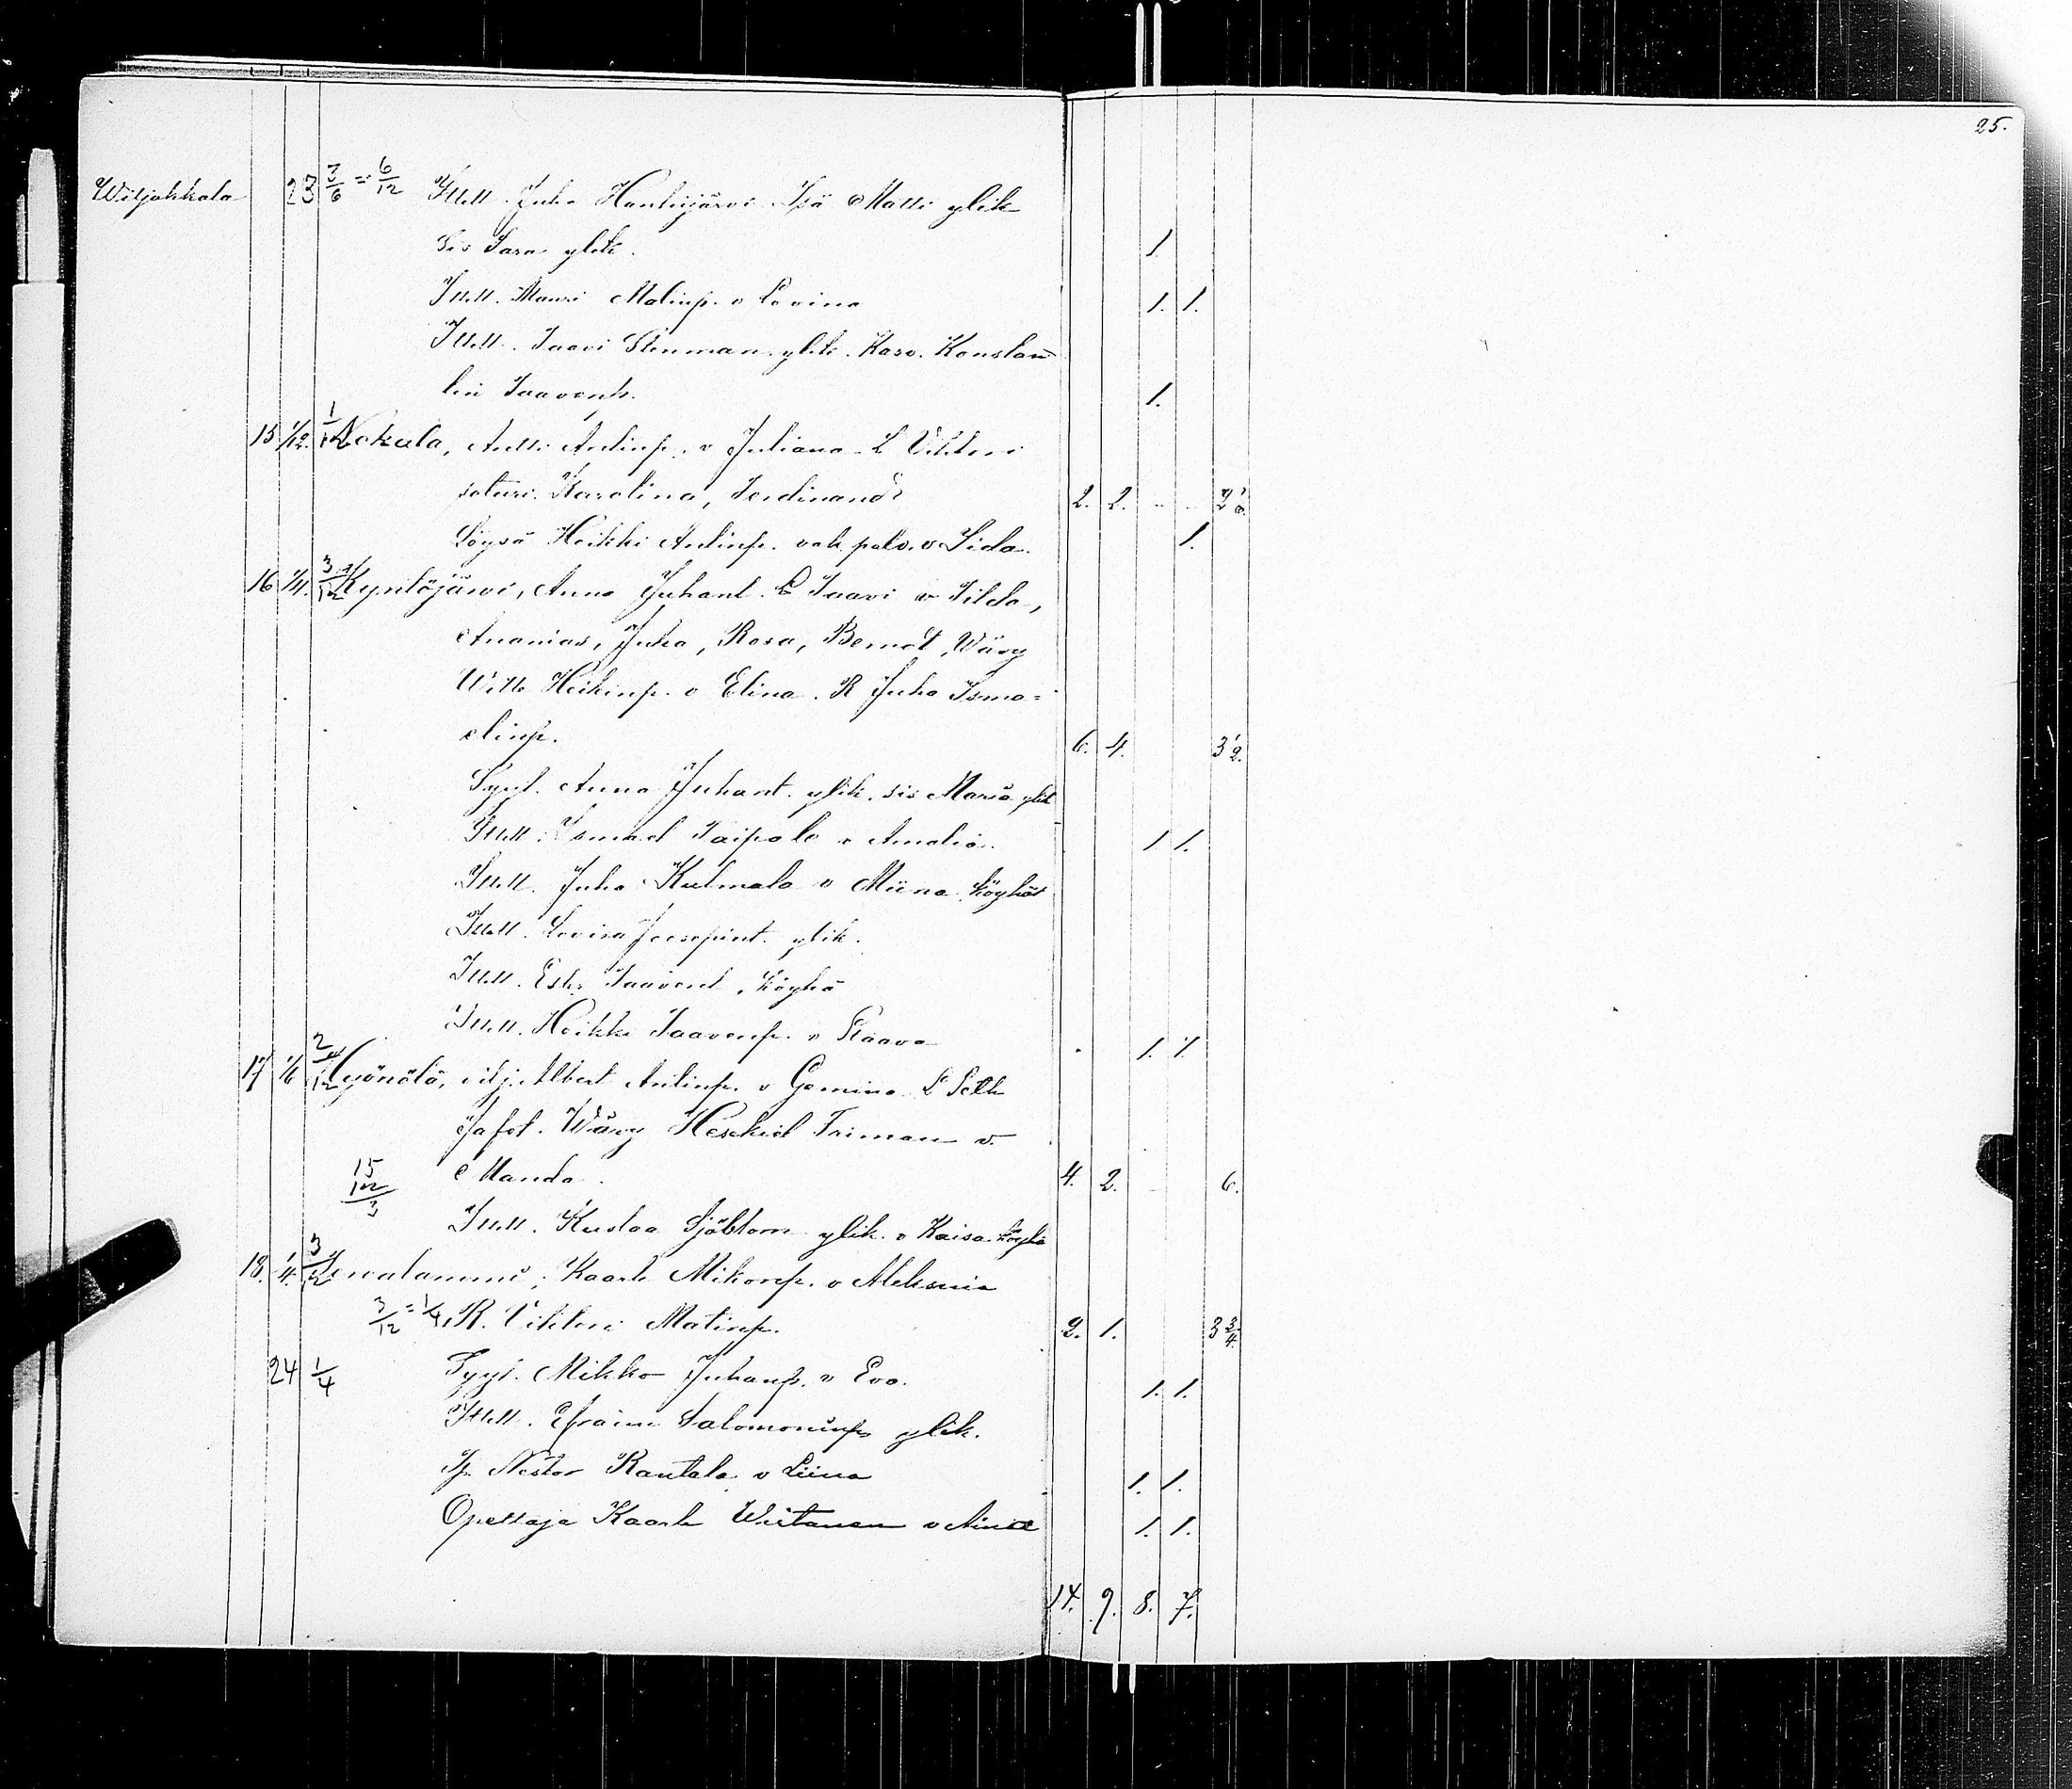 25.
Wiljakkala 23 3/6 = 6/12 Itsell. Juho Hanhijärvi Isä Matti ylik
Sis Sara ylik. 1
Itsell. Mauri Matinp. v Lovina 1. 1.
Itsell. Taavi Stenman ylik. Kasv. Konstan
tin Taavenp. 1.
15 1/12. 1/12 Nokula, Antti Antinp. v Juliana L Vihtori
soturi. Karolina, Ferdinand 2. 2.
Löysä Heikki Antinp. vak. palv. v Lida. 1.
16 1/4. 3/12 Kyntöjärvi, Anna Juhant. L Taavi v Tilda,
Ananias, Juha, Rosa, Bernat, Wävy
Wille Heikinp. v Elina. R Juho Isma=
elinp. 6. 4. 3 1/2.
Syyt. Anna Juhant. ylik. sis Maria ylik
Itsell. Ismael Taipale v Amalia. 1 1.
Itsell. Juho Kulmala v Miina köyhät
Itsell. Lovisa Joosepint. ylik.
Itsell. Taavent, köyhä
Itsell. Heikki Taavenp. v Staava 1. 1.
17 1/6 2/12 Myönölä, vilj. Albert Antinp. v Gemina L Seth
Jafet. Wävy Heskiel Friman v.
15/12 3 Manda. 4. 2. 6.
Itsell. Kustaa Sjöblom ylik. v Kaisa köyhä
18. 1/4. 3/12 Kaarle Mikonp. v Aleksina
3/12 = 1/4 R. Vihtori Matinp. 2. 1. 3 3/4.
24 1/4 Syyt. Mikko Juhanp. v Eva. 1. 1.
Itsell. Efraim Salomoninp. ylik.
Nestor Rantala v Liina 1. 1.
Opettaja Kaarle Wiitanen v Aina 1. 1.
14. 9. 8. 7.